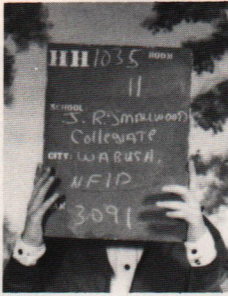 HH 1035 ROOM
11
SCHOOL
J. R. Smallwood
Collegiate
CITY: WABUSH,
NFLD
3091